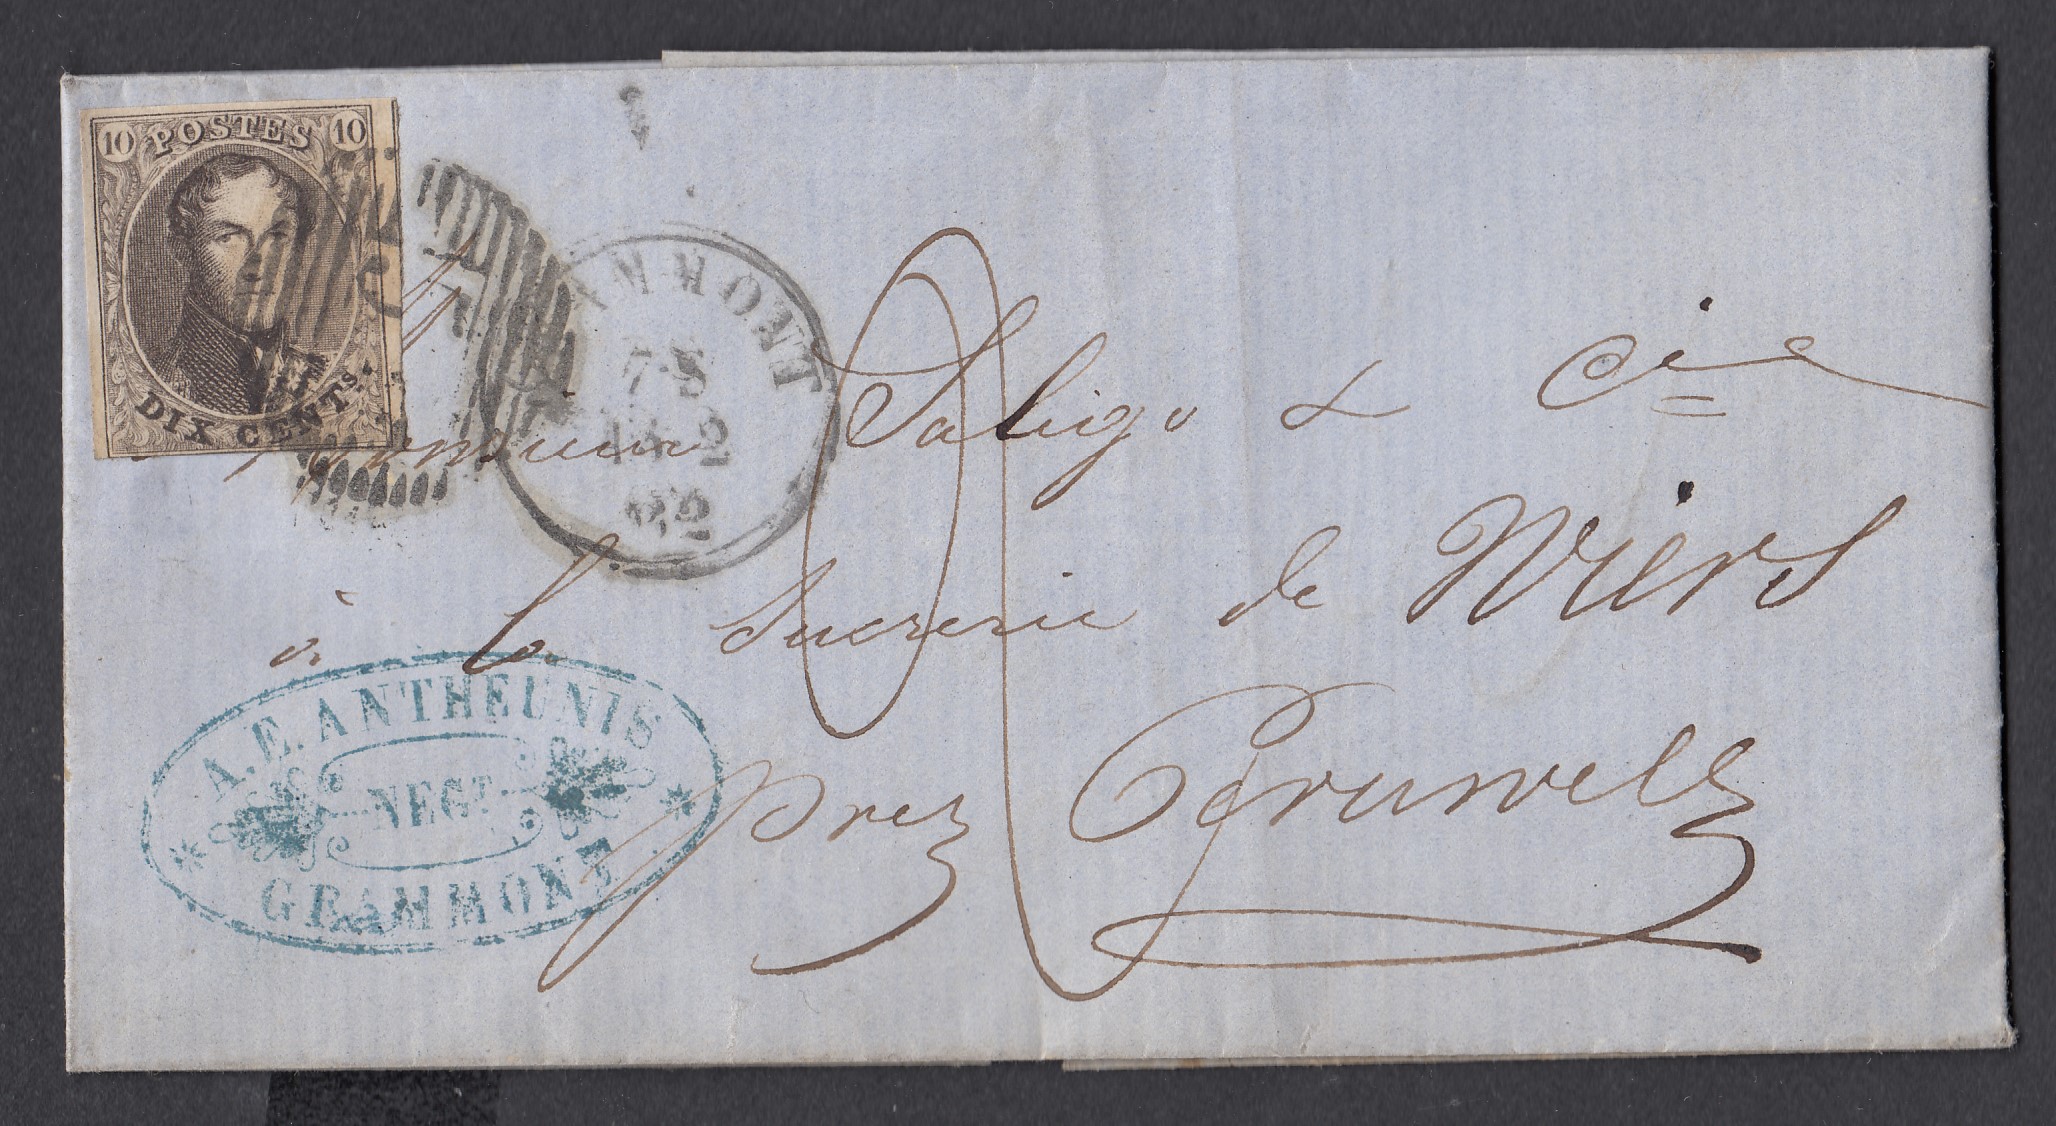 10 POSTES 10
DIX CENTS.
GRAMMONT
7-S
Saligo & Cie
à la Sucrerie de Wiers
prez Peruwelz
A. E. ANTHEUNIS
NEGT.
GRAMMONT